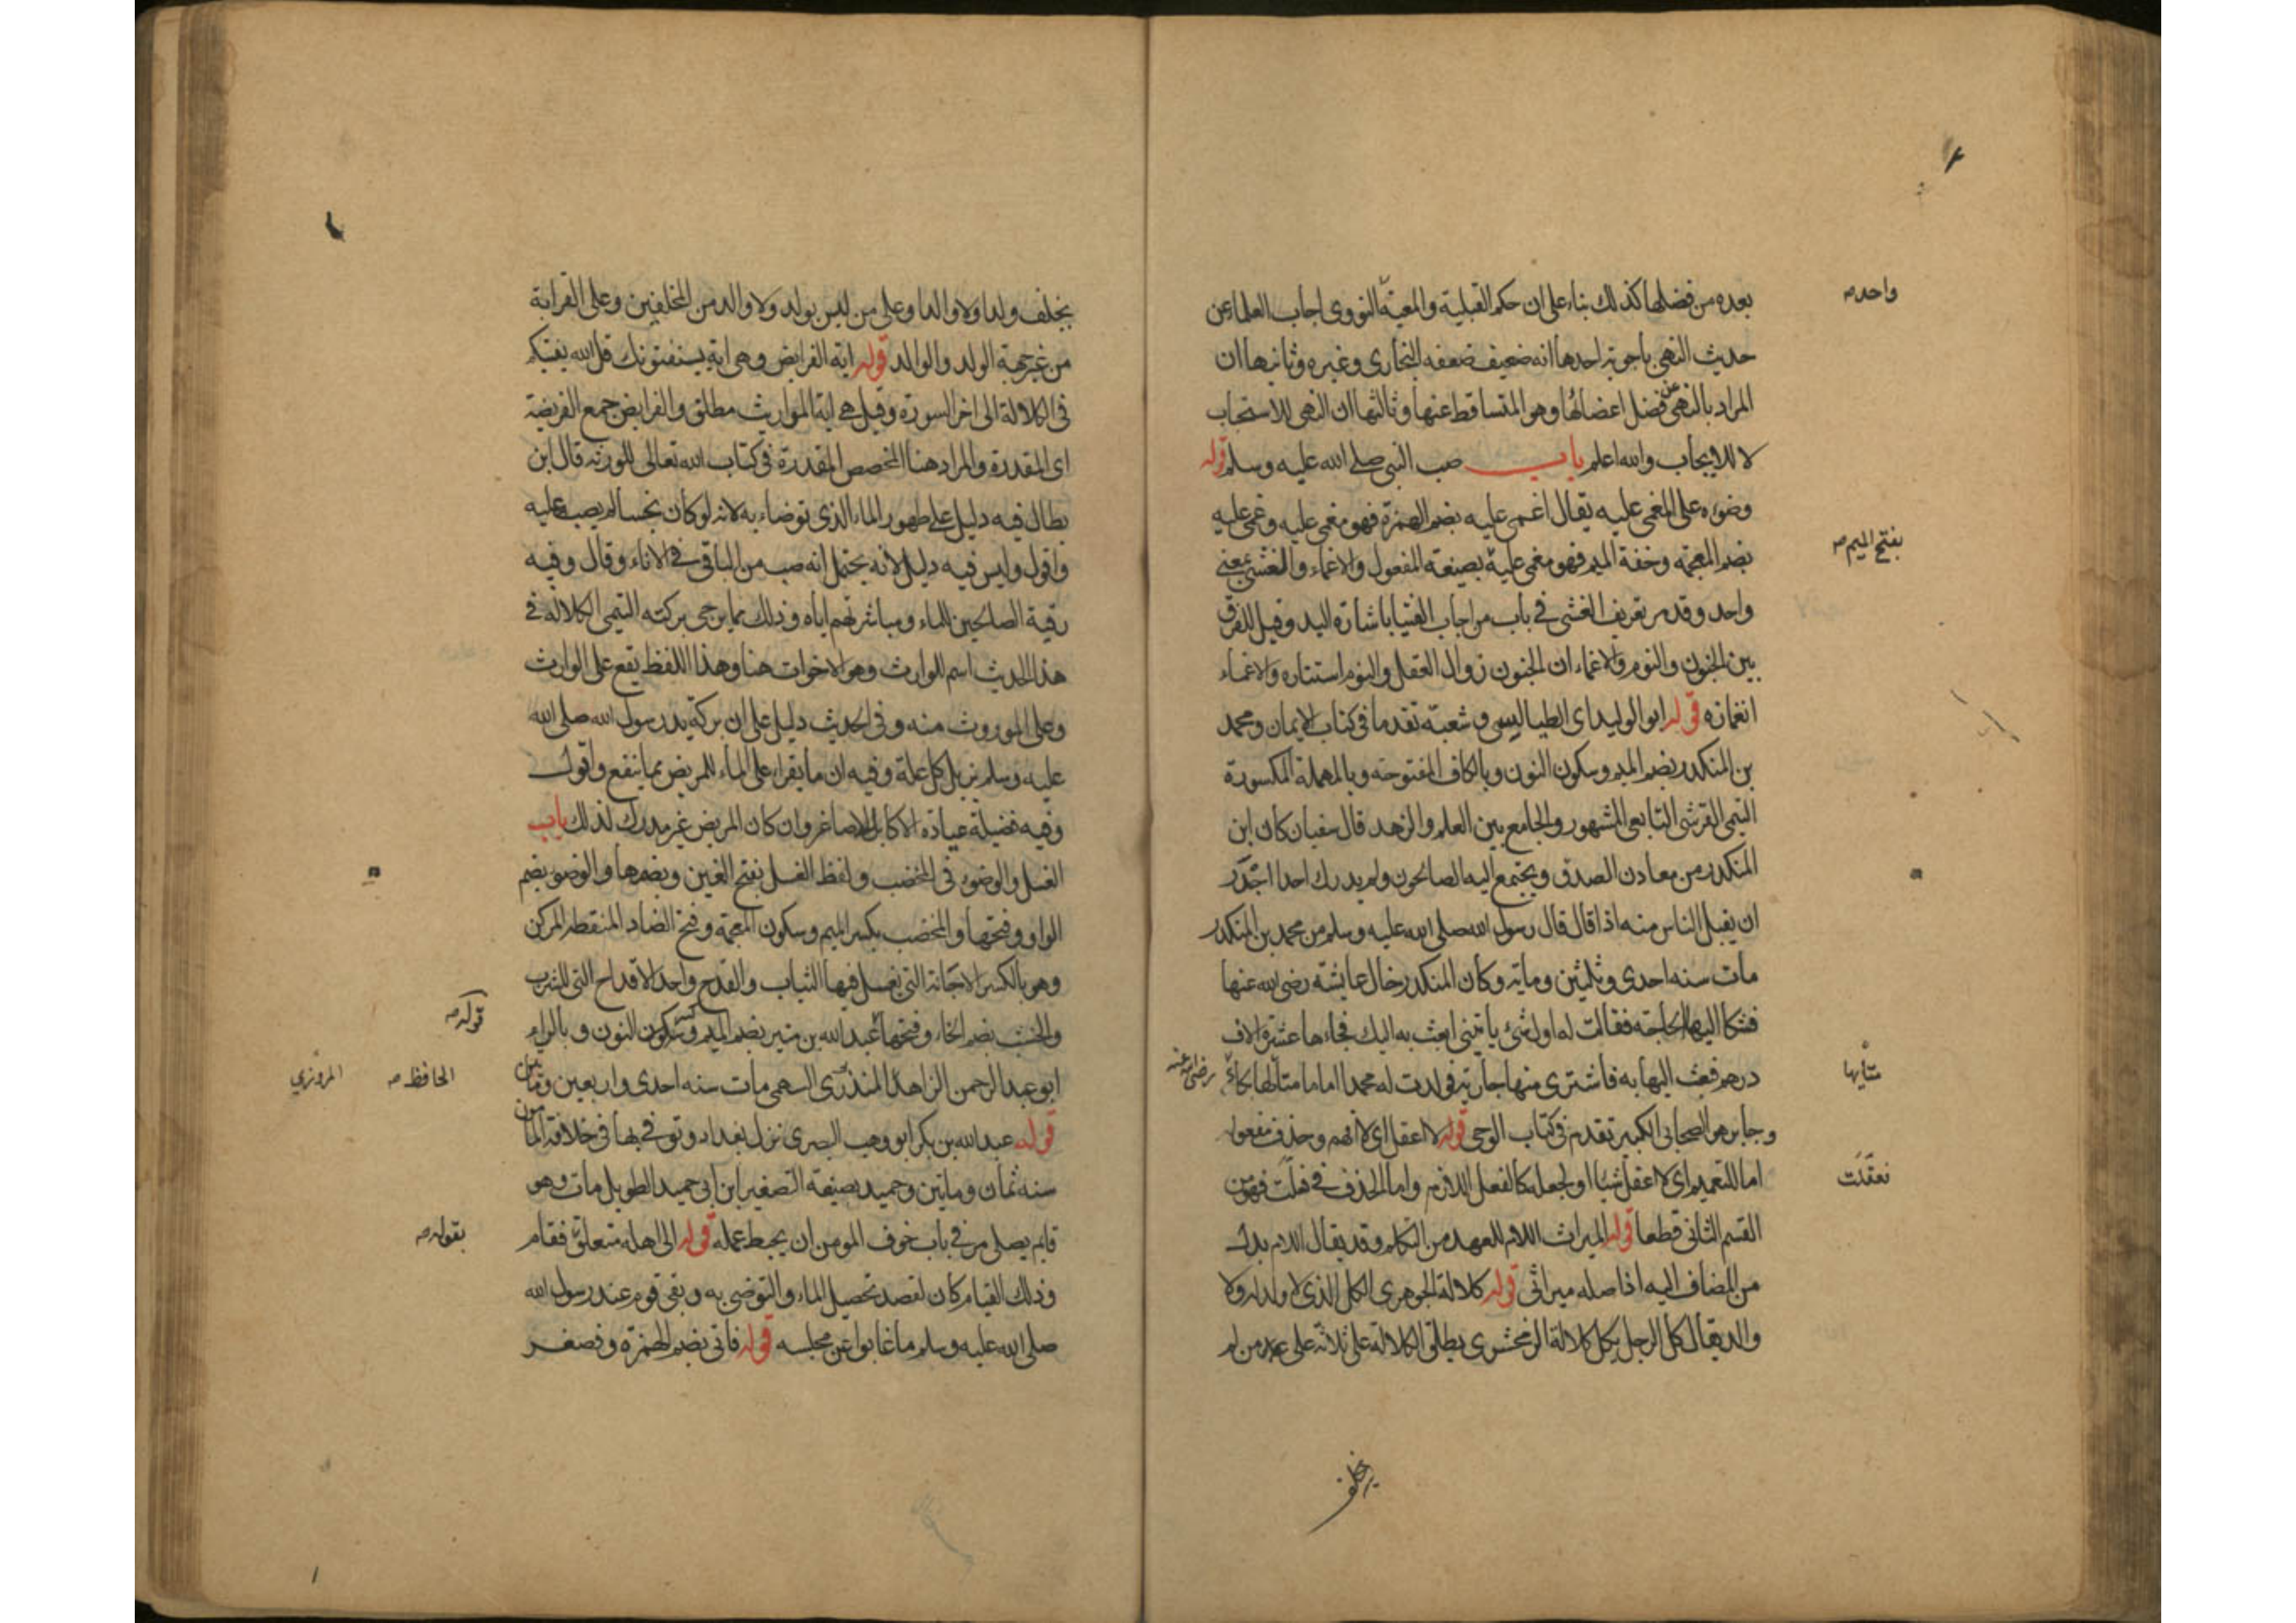 بعده من فضلها كذلك بناء على ان حكم القبلية والمعية النووى اجاب العلماء عن
واحد صح
حديث النهى باجوبة احدها انه ضعيف ضعفه البخارى وغيره وثانيها ان
المراد بالنهى عن فضل اعضائها وهو المتساقط عنها وثالثها ان النهى للاستحباب
لا للايجاب والله اعلم باب صب النبى صلى الله عليه وسلم قوله
وضوءه على المغمى عليه يقال اغمى عليه بضم الهمزة فهو مغمى عليه وغمى عليه
بفتح الميم صح
بضم المعجمة وخفة الميم فهو مغمى عليه بصيغة المفعول والاغماء والغشى بمعنى
واحد وقد مر تعريف الغشى فى باب من اجاب الفتيا باشارة اليد وقيل الفرق
بين الجنون والنوم والاغماء ان الجنون زوال العقل والنوم استتاره والاغماء
انغمازه قوله ابو الوليد اى الطيالسى وشعبة تقدما فى كتاب الايمان ومحمد
بن المنكدر بضم الميم وسكون النون وبالكاف المفتوحة وبالمهملة المكسورة
التيمى القرشى التابعى المشهور والجامع بين العلم والزهد قال سفيان كان ابن
المنكدر من معادن الصدق ويجتمع اليه الصالحون ولم يدرك احدا اجدر
ان يقبل الناس منه اذا قال قال رسول الله صلى الله عليه وسلم من محمد بن المنكدر
مات سنه احدى وثلثين وماية وكان المنكدر خال عايشة رضى الله عنها
فشكا اليها الحاجة فقالت له اول شئ ياتينى ابعث به اليك فجاءها عشرة الاف
درهم فبعث اليها به فاشترى منها جارية فولدت له محمدا اماما متألها بكاء
رضى الله عنه
وجابر هو الصحابى الكبير تقدم فى كتاب الوحى قوله لا اعقل اى لا افهم وحذف مفعوله
اما للتعميم اى لا اعقل شيئا او لجعله كالفعل اللازم واما الحذف فى فعقلت فهو من
فعقلت
القسم الثانى قطعا قوله الميراث اللام للعهد من المتكلم وقد يقال اللام بدل
من المضاف اليه اذ اصله ميراثى قوله كلالة الجوهرى الكل الذى لا ولد له ولا
والد يقال كل الرجل يكل كلالة الزمخشرى يطلق الكلالة على ثلاثة على من لم
يخلف
يخلف ولدا ولا والدا وعلى من ليس بولد ولا والد من المخلفين وعلى القرابة
من غير جهة الولد والوالد قوله اية الفرايض وهى اية يستفتونك قل الله يفتيكم
فى الكلالة الى اخر السورة وقيل هى اية المواريث مطلق والفرايض جمع الفريضة
اى المقدرة والمراد هنا الحصص المقدرة فى كتاب الله تعالى للورثة قال ابن
بطال فيه دليل على طهور الماء الذى توضاء به لانه لو كان نجسا لم يصبه عليه
واقول وليس فيه دليل لانه يحتمل انه صب من الباقى فى الاناء وقال وفيه
رقية الصالحين للماء ومباشرتهم اياه وذلك مما يرجى بركته التيمى الكلاله فى
هذا الحديث اسم للوارث وهو الاخوات هنا وهذا اللفظ يقع على الوارث
وعلى الموروث منه وفى الحديث دليل على ان بركة يد رسول الله صلى الله
عليه وسلم يزيل كل علة وفيه ان ما يقراء على الماء للمريض مما ينفع واقول
وفيه فضيلة عيادة الاكابر الاصاغر وان كان المريض غير مدرك لذلك باب
الغسل والوضوء فى المخضب ولفظ الغسل بفتح الغين وبضمها والوضوء بضم
الواو وفتحها والمخضب بكسر الميم وسكون المعجمة وفتح الضاد المنقطه المركن
وهو بالكسر الاجانة التى يغسل فيها الثياب والقدح واحد الاقداح التى للشرب
والخشب بضم الخاء وفتحها عبد الله بن منير بضم الميم وسكون النون وبالراء
قوله صح
ابو عبد الرحمن الزاهد السهمى مات سنه احدى واربعين ومايتين
الحافظ صح
المروزي
قوله عبد الله بن بكر ابو وهب البصرى نزل بغداد وتوفى بها فى خلافة المامون
سنه ثمان وماتين وحميد بصيغة التصغير ابن ابى حميد الطويل مات وهو
قايم يصلى مر فى باب خوف المومن ان يحبط عمله قوله الى اهله متعلق فقام
بقوله صح
وذلك القيام كان لقصد تحصيل الماء والتوضى به وبقى قوم عند رسول الله
صلى الله عليه وسلم ما غابوا عن مجلسه قوله فاتى بضم الهمزة وفصغر